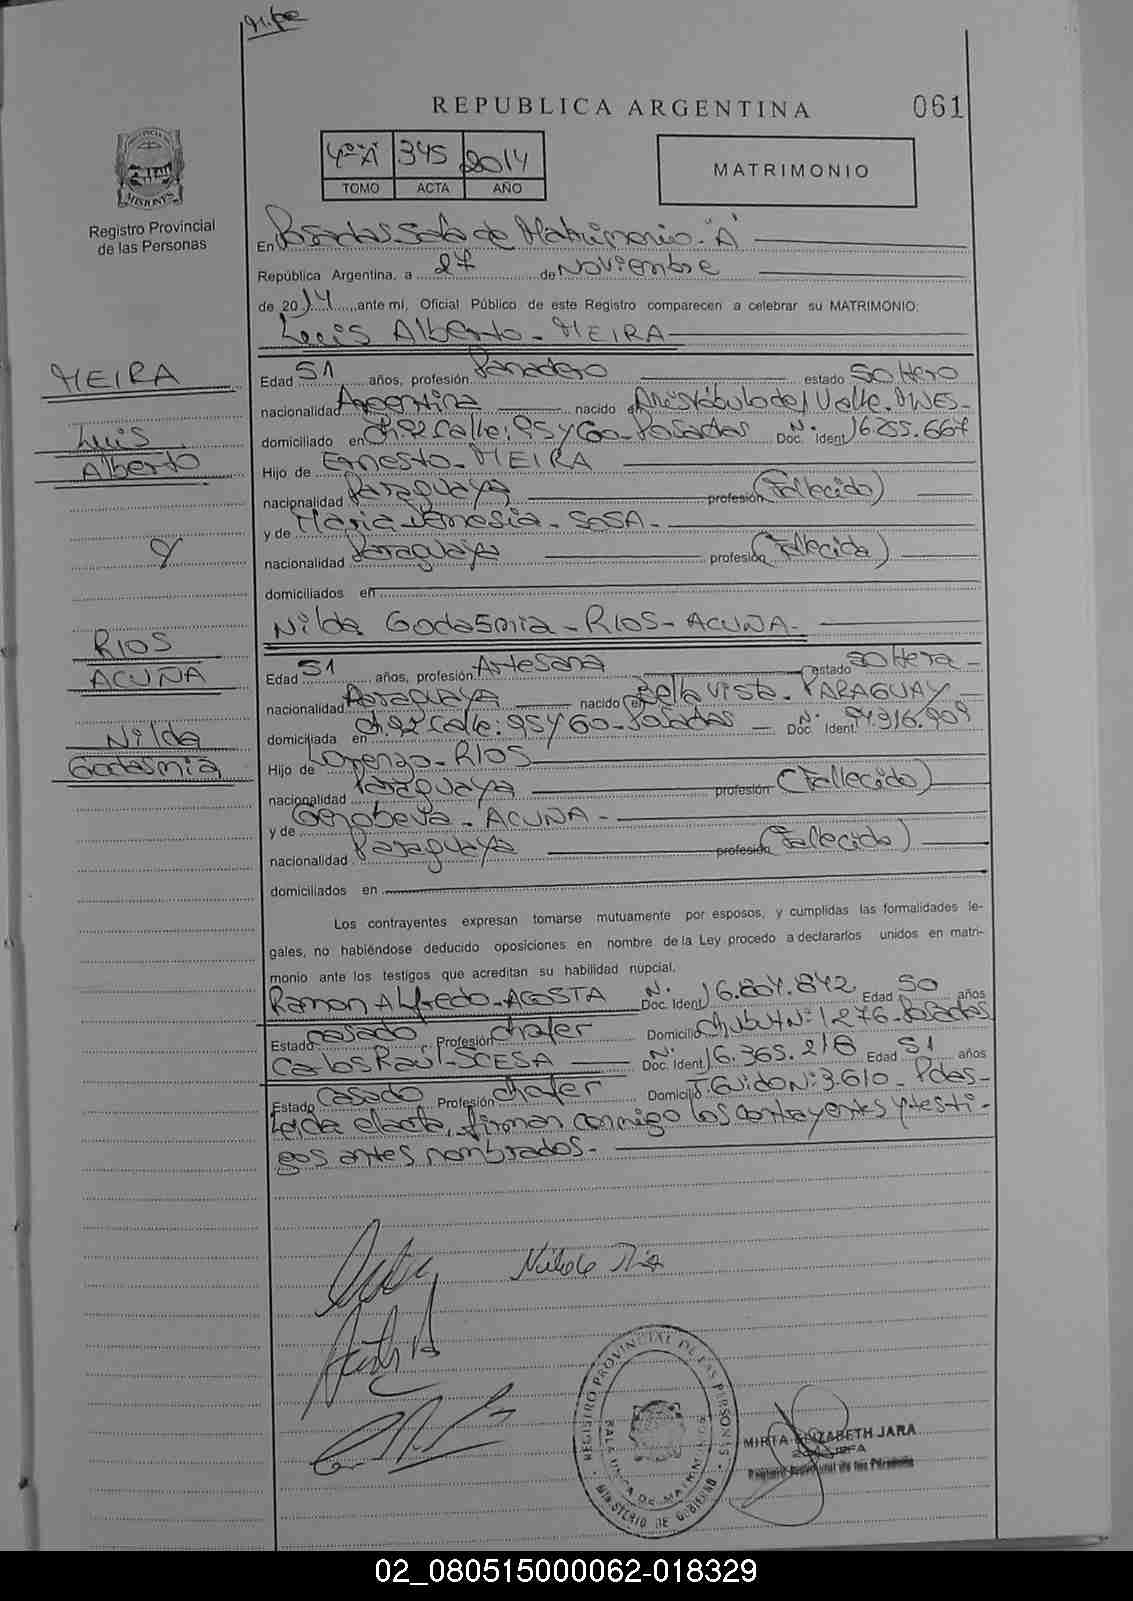 REPUBLICA ARGENTINA
061
4º "A" 345 2014
TOMO ACTA AÑO
MATRIMONIO
PROVINCIA DE
MISIONES
Registro Provincial
de las Personas
En Posadas Sala de Matrimonio "A"
República Argentina, a 27 de Noviembre
de 2014, ante mí, Oficial Público de este Registro comparecen a celebrar su MATRIMONIO:
Luis Alberto - MEIRA
MEIRA
Luis
Alberto
y
RIOS
ACUÑA
Nilda
Godasmia
Edad 51 años, profesión Panadero estado Soltero
nacionalidad Argentina nacido en Aristóbulo del Valle, MNES-
domiciliado en Ch. 92 Calle: 95 y 60 - Posadas Nº Doc. Ident. 16.255.667
Hijo de Ernesto - MEIRA
nacionalidad Paraguaya profesión (Fallecido)
y de Maria SOSA -
nacionalidad Paraguaya profesión (Fallecida)
domiciliados en
Nilda Godasmia - RIOS - ACUÑA -
Edad 51 años, profesión Artesana estado Soltera -
nacionalidad Paraguaya nacido en Bella Vista - PARAGUAY -
domiciliada en Ch. 92 Calle: 95 y 60 - Posadas - Nº Doc. Ident. 94.916.909
Hijo de Lorenzo - RIOS
nacionalidad Paraguaya profesión (Fallecido)
y de Genobeva - ACUÑA -
nacionalidad Paraguaya profesión (Fallecida)
domiciliados en
Los contrayentes expresan tomarse mutuamente por esposos, y cumplidas las formalidades le-
gales, no habiéndose deducido oposiciones en nombre de la Ley procedo a declararlos unidos en matri-
monio ante los testigos que acreditan su habilidad nupcial.
Ramon Alfredo - ACOSTA Nº Doc. Ident. 16.804.842 Edad 50 años
Estado casado Profesión chofer Domicilio Chubut Nº: 1276 - Posadas
Carlos Raúl - SCESA Nº Doc. Ident. 16.365.218 Edad 51 años
Estado casado Profesión chofer Domicilio T. Guido Nº: 3.610 - Pdas -
Leida el acta, firman conmigo los contrayentes y testi-
gos antes nombrados. -
REGISTRO PROVINCIAL DE LAS PERSONAS
SALA UNICA DE MATRIMONIOS
MINISTERIO DE GOBIERNO
MIRTA ELIZABETH JARA
Registro Provincial de las Personas
02_080515000062-018329